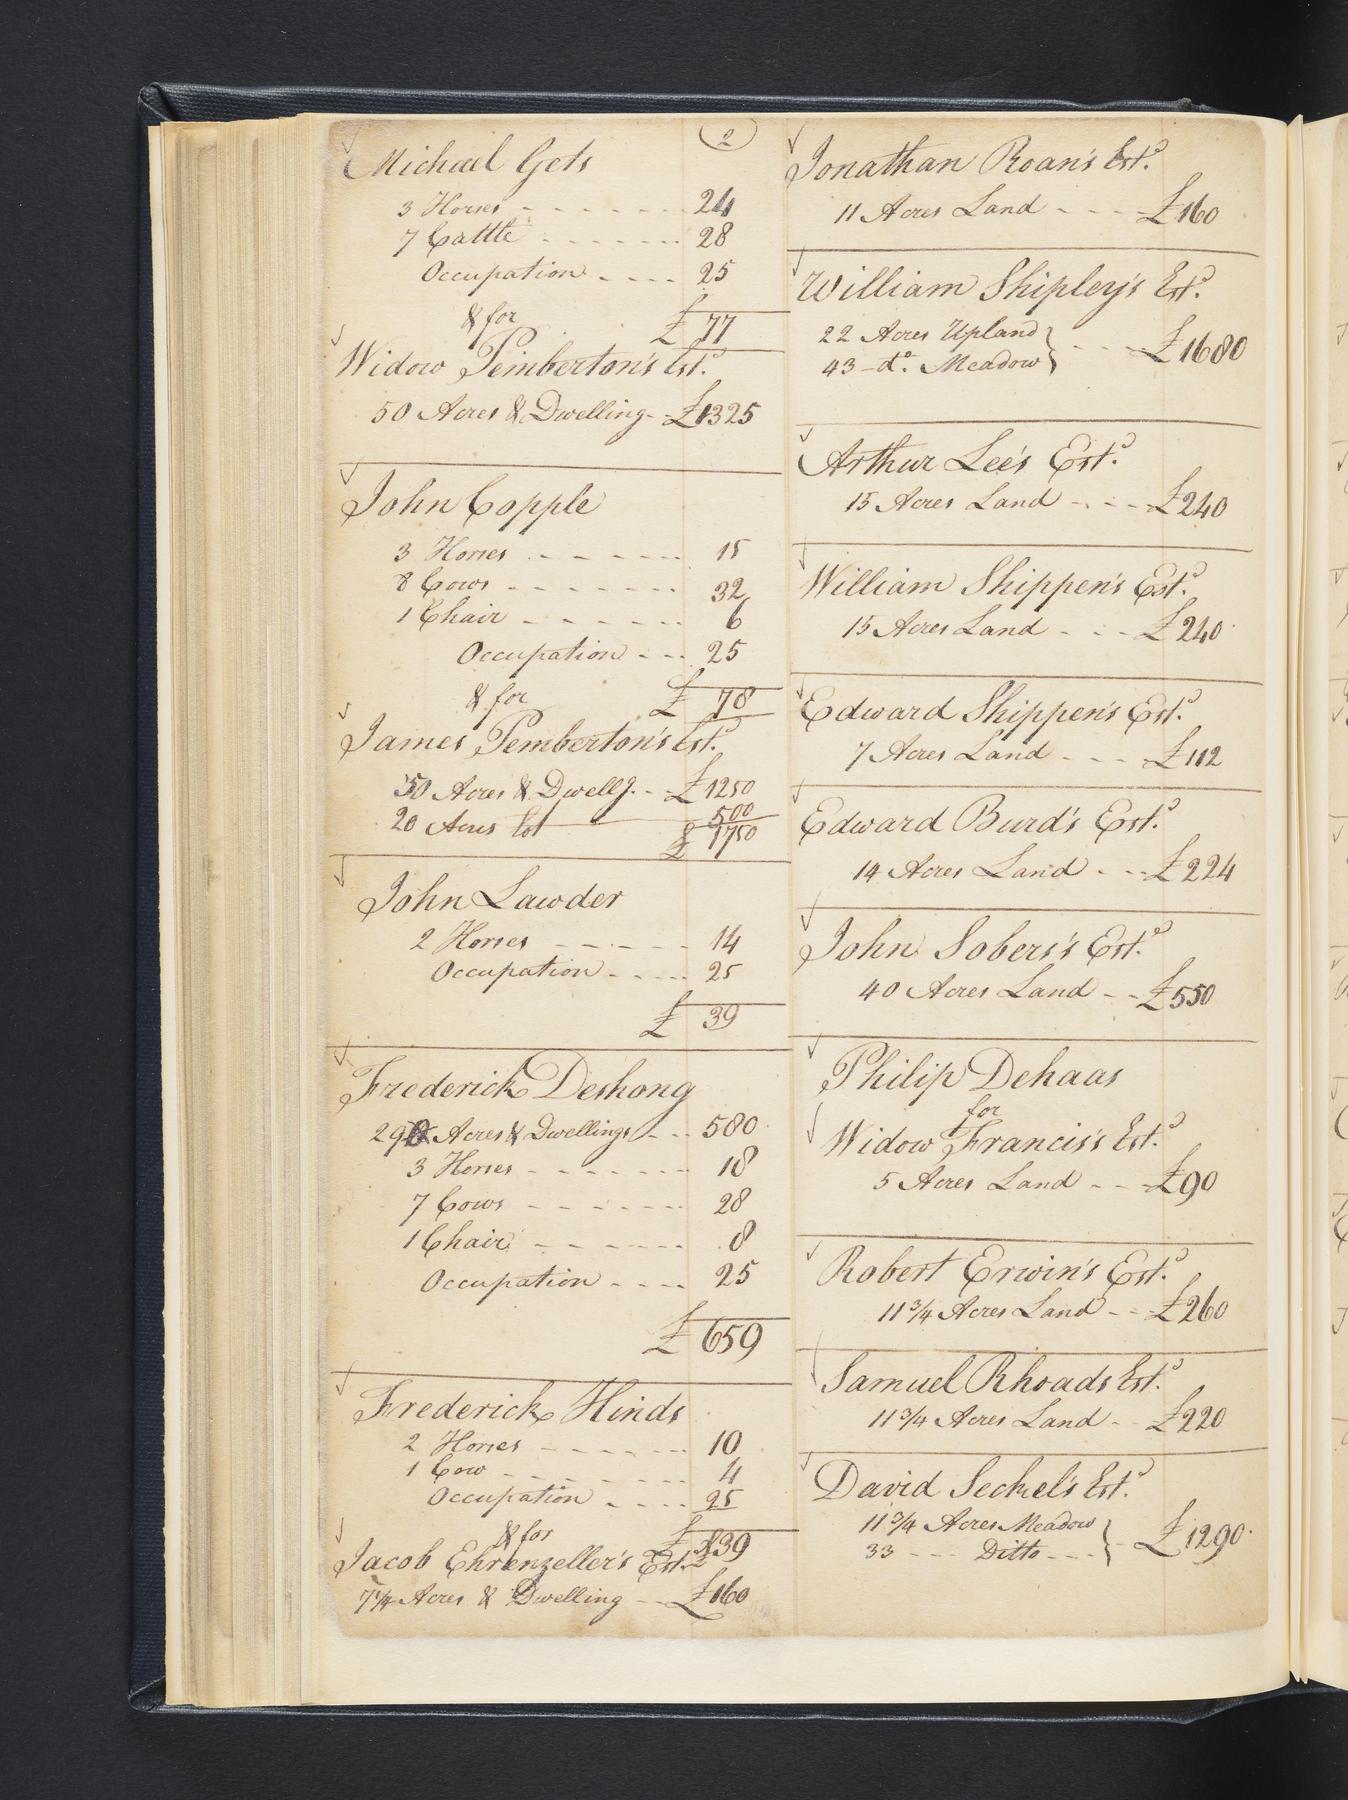 2
Michael Gets
3 Horses - - - - - - 24
7 Cattle - - - - - - 28
Occupation - - - - 25
& for £ 77
Widow Pemberton's Est.ᵈ
50 Acres & Dwelling - £1325
John Copple
3 Horses - - - - - - 15
8 Cows - - - - - - 32
1 Chair - - - - - - 6
Occupation - - - 25
& for £ 78
James Pemberton's Est.ᵈ
50 Acres & Dwellg. - - £1250
20 Acres lot 500
£ 1750
John Lawder
2 Horses - - - - - 14
Occupation - - - - - 25
£ 39
Frederick Deshong
29 Acres & Dwellings - - - 580
3 Horses - - - - - - 18
7 Cows - - - - - - 28
1 Chair - - - - - - 8
Occupation - - - - 25
£ 659
Frederick Hinds
2 Horses - - - - - - 10
1 Cow - - - - - - 4
Occupation - - - - 25
& for £ 39
Jacob Ehrenzeller's Est.ᵈ
7¼ Acres & Dwelling - - £160
Jonathan Roan's Est.ᵈ
11 Acres Land - - - - £160
William Shipley's Est.ᵈ
22 Acres Upland
43 - dº. Meadow } - - - - £1680
Arthur Lee's Est.ᵈ
15 Acres Land - - - - £240
William Shippen's Est.ᵈ
15 Acres Land - - - £240
Edward Shippen's Est.ᵈ
7 Acres Land - - - - £112
Edward Burd's Est.ᵈ
14 Acres Land - - - £224
John Sobers's Est.ᵈ
40 Acres Land - - £550
Philip Dehaas
for
Widow Francis's Est.ᵈ
5 Acres Land - - - £90
Robert Erwin's Est.ᵈ
11¾ Acres Land - - £260
Samuel Rhoads Est.ᵈ
11¾ Acres Land - - £220
David Seckel's Est.ᵈ
11¾ Acres Meadow
33 - - - Ditto - - - } - £1290